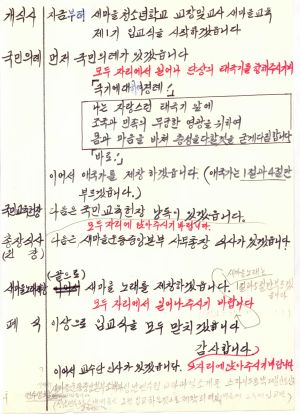 개식사 지금부터 새마을청소년학교 교장및교사 새마을교육
제1기 입교식을 시작하겠습니다
국민의례 먼저 국민의례가 있겠습니다
모두 자리에서 일어나 단상의 태극기를 향해주시기
「국기에대하여경례」
나는 자랑스런 태극기 앞에
조국과 민족의 무궁한 영광을 위하여
몸과 마음을 바쳐 충성을다할것을 굳게다짐합니다
「바로」
이어서 애국가를 제창 하겠습니다. (애국가는 1절과4절만
부르겠습니다.)
국민교육헌장 다음은 국민교육헌장 낭독이 있겠습니다
모두 자리에 앉아주시기바랍니다.
총장식사 다음은 새마을운동중앙본부 사무총장 식사가 있겠습니다.
(원장)
(끝으로) 새마을노래는
새마을노래제창 새마을 노래를 제창하겠습니다. 1절과
모두 자리에서 일어나 주시기 바랍니다
폐식 이상으로 입교식을 모두 마치겠습니다
감사합니다
이어서 교수단 인사가 있겠습니다. 모두자리에앉아주시기바랍니다